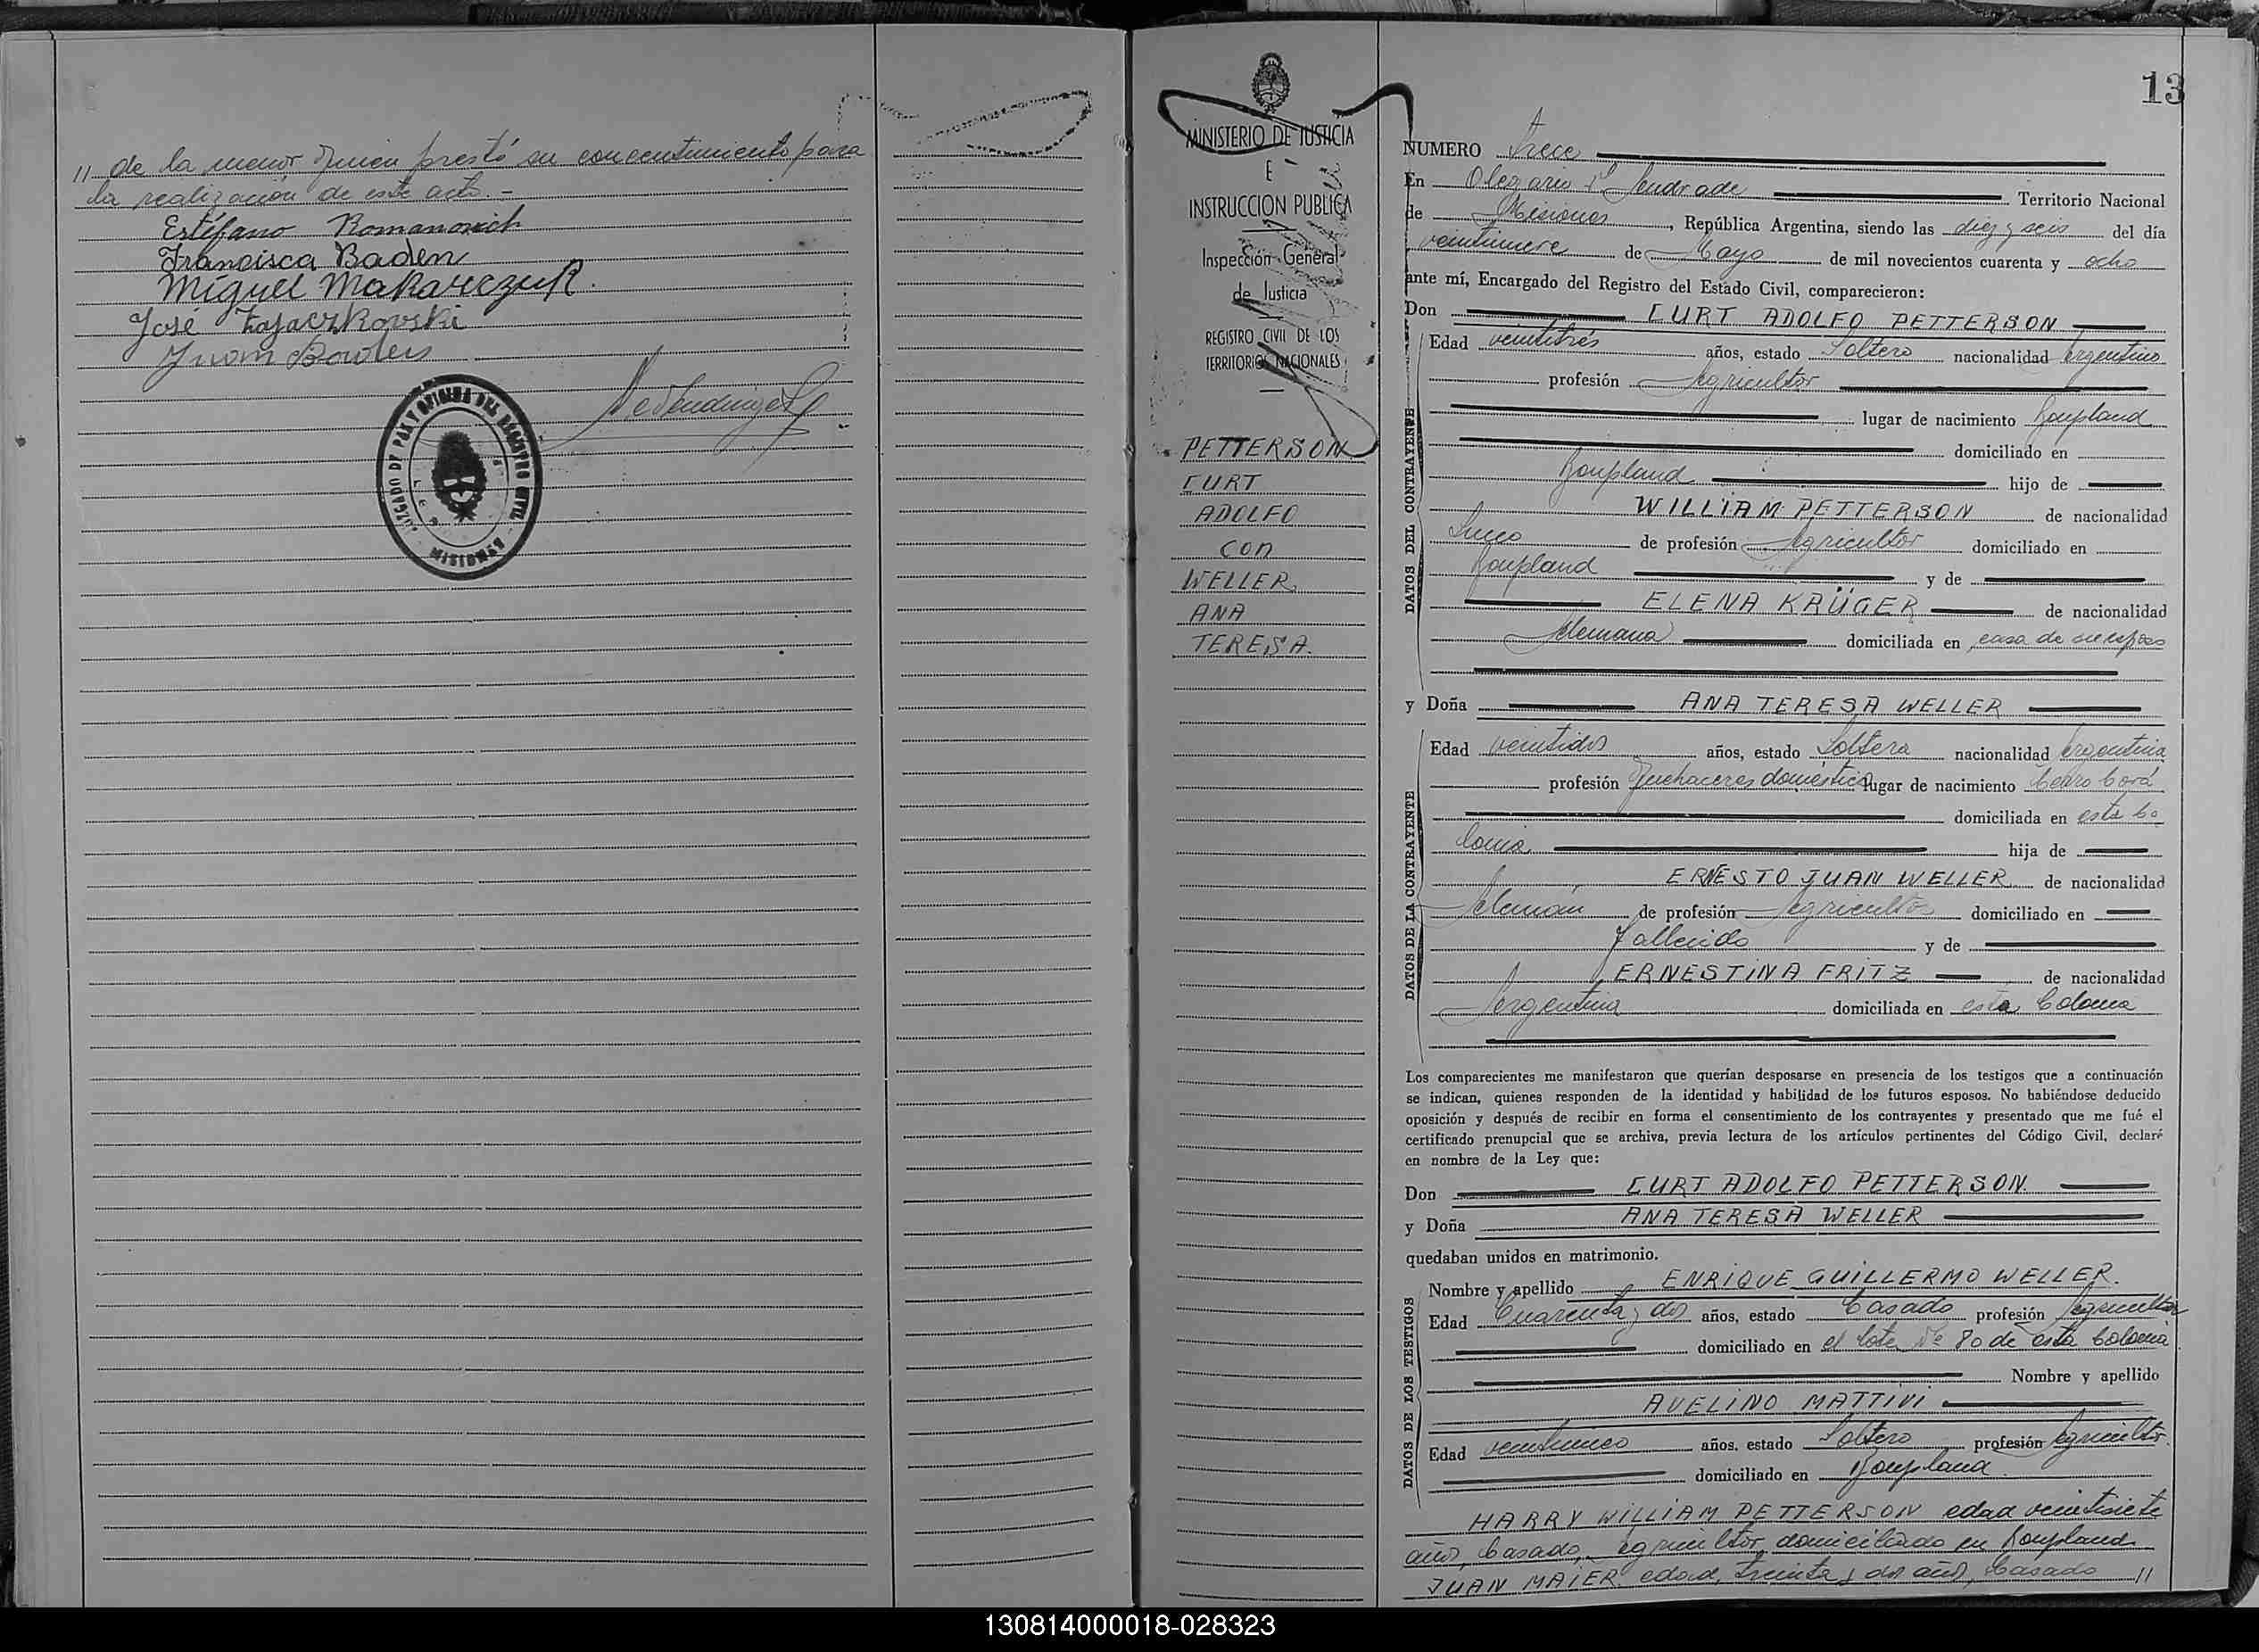 // de la menor quien prestó su concentimiento para
la realización de este acto.-
Estéfano Romanovich
Francisca Baden
Miguel Makarczuk.
José Zajaczkovski
Juan
JUZGADO DE PAZ Y OFICINA DEL REGISTRO CIVIL
MISIONES
MINISTERIO DE JUSTICIA
E
INSTRUCCION PUBLICA
Inspección General
de Justicia
REGISTRO CIVIL DE LOS
TERRITORIOS NACIONALES
PETTERSON
CURT
ADOLFO
con
WELLER
ANA
TERESA.
13
NUMERO Trece
En Olegario V. Andrade Territorio Nacional
de Misiones, República Argentina, siendo las diez y seis del día
veintinueve de Mayo de mil novecientos cuarenta y ocho
ante mí, Encargado del Registro del Estado Civil, comparecieron:
Don CURT ADOLFO PETTERSON
DATOS DEL CONTRAYENTE
Edad veintitrés años, estado Soltero nacionalidad Argentino
profesión Agricultor
lugar de nacimiento Bonpland
domiciliado en
Bonpland hijo de
WILLIAM PETTERSON de nacionalidad
Sueco de profesión Agricultor domiciliado en
Bonpland y de
ELENA KRÜGER de nacionalidad
Alemana domiciliada en casa de su esposo
y Doña ANA TERESA WELLER
DATOS DE LA CONTRAYENTE
Edad veintidos años, estado Soltera nacionalidad Argentina
profesión Quehaceres domésticos lugar de nacimiento Cerro Corá
domiciliada en esta Co
lonia hija de
ERNESTO JUAN WELLER de nacionalidad
Alemán de profesión Agricultor domiciliado en
Fallecido y de
ERNESTINA FRITZ de nacionalidad
Argentina domiciliada en esta Colonia
Los comparecientes me manifestaron que querían desposarse en presencia de los testigos que a continuación
se indican, quienes responden de la identidad y habilidad de los futuros esposos. No habiéndose deducido
oposición y después de recibir en forma el consentimiento de los contrayentes y presentado que me fué el
certificado prenupcial que se archiva, previa lectura de los artículos pertinentes del Código Civil, declaré
en nombre de la Ley que:
Don CURT ADOLFO PETTERSON.
y Doña ANA TERESA WELLER
quedaban unidos en matrimonio.
DATOS DE LOS TESTIGOS
Nombre y apellido ENRIQUE GUILLERMO WELLER.
Edad Cuarenta y dos años, estado Casado profesión Agricultor
domiciliado en el lote Nº 80 de esta Colonia
Nombre y apellido
AVELINO MATTIVI
Edad veinticinco años, estado Soltero profesión Agricultor.
domiciliado en Bonpland.
HARRY WILLIAM PETTERSON edad veintisiete
años, Casado, Agricultor, domiciliado en Bonpland
JUAN MAIER edad, treinta y dos años, Casado //
130814000018-028323